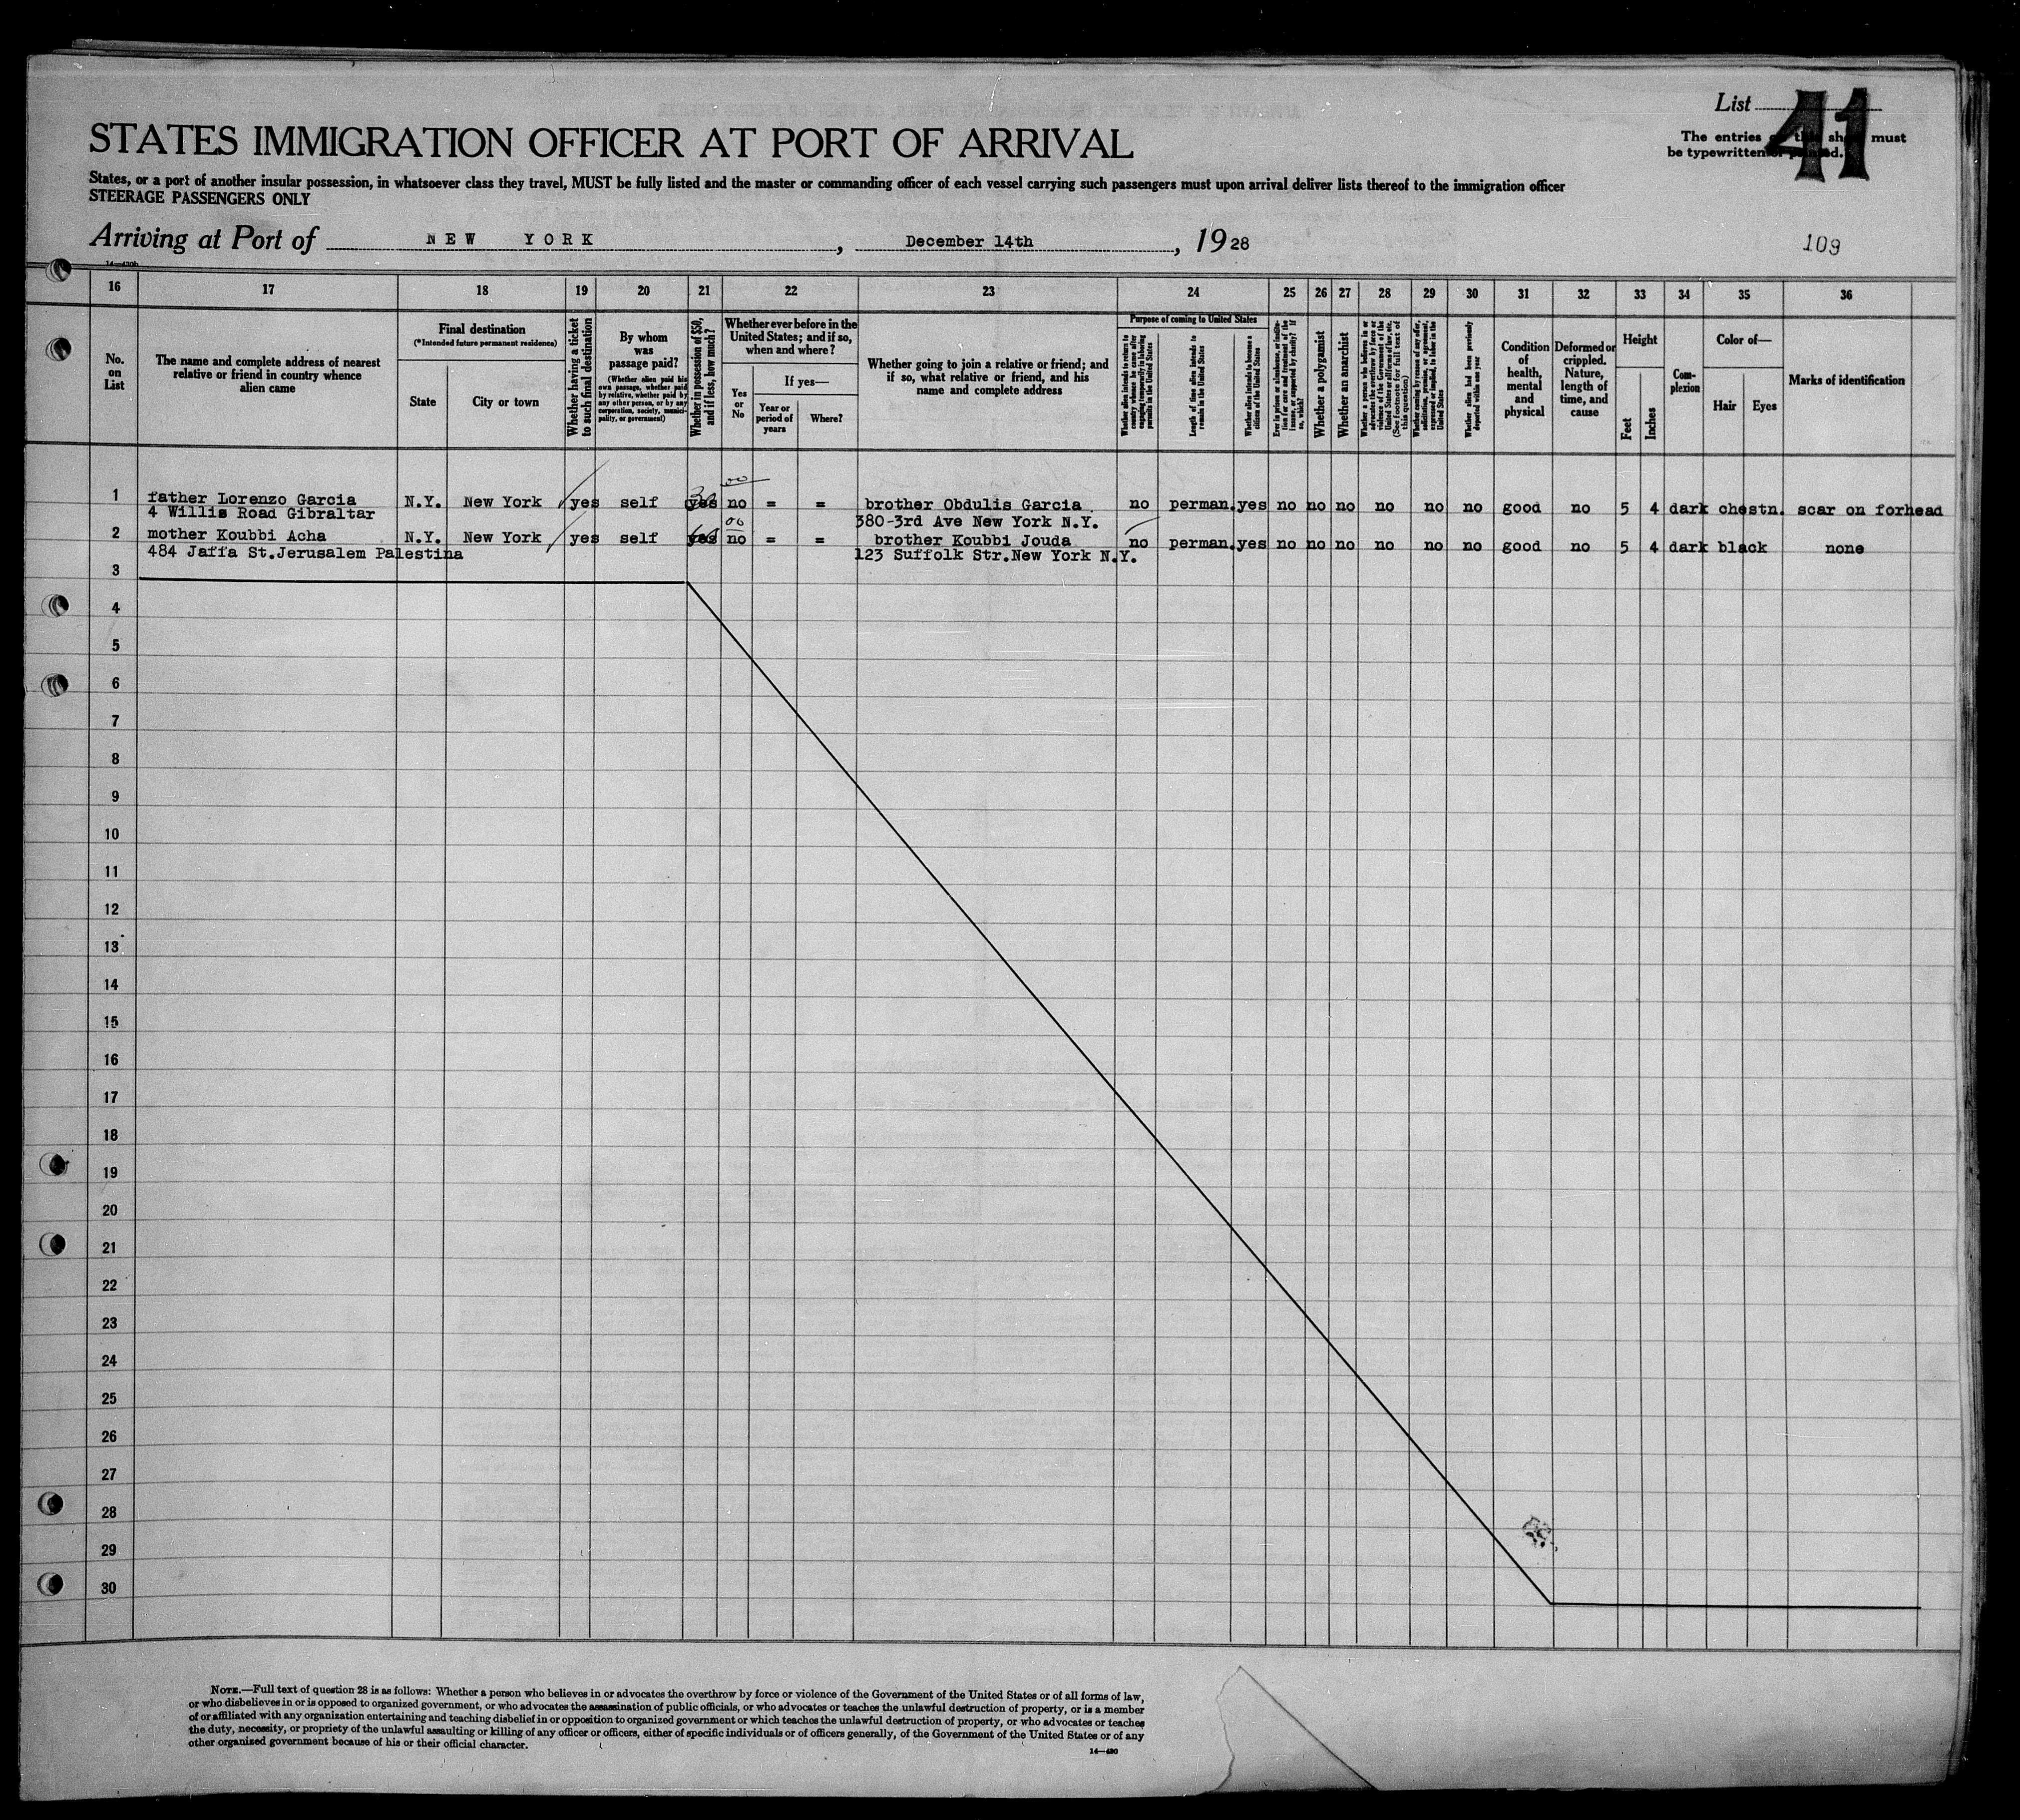 List 41
The entries on this sheet must
be typewritten or printed.
STATES IMMIGRATION OFFICER AT PORT OF ARRIVAL
States, or a port of another insular possession, in whatsoever class they travel, MUST be fully listed and the master or commanding officer of each vessel carrying such passengers must upon arrival deliver lists thereof to the immigration officer
STEERAGE PASSENGERS ONLY
Arriving at Port of NEW YORK, December 14th, 1928
109
16 17 18 19 20 21 22 23 24 25 26 27 28 29 30 31 32 33 34 35 36
No. on List
The name and complete address of nearest relative or friend in country whence alien came
Final destination
(*Intended future permanent residence)
State
City or town
Whether having a ticket to such final destination
By whom was passage paid?
(Whether alien paid his own passage, whether paid by relative, whether paid by any other person, or by any corporation, society, municipality, or government)
Whether in possession of $50, and if less, how much?
Whether ever before in the United States; and if so, when and where?
Yes or No
If yes—
Year or period of years
Where?
Whether going to join a relative or friend; and if so, what relative or friend, and his name and complete address
Purpose of coming to United States
Whether alien intends to return to country whence he came after engaging temporarily in laboring pursuits in the United States
Length of time alien intends to remain in the United States
Whether alien intends to become a citizen of the United States
Ever in prison or almshouse, or institution for care and treatment of the insane, or supported by charity? If so, which?
Whether a polygamist
Whether an anarchist
Whether a person who believes in or advocates the overthrow by force or violence of the Government of the United States or all forms of law, etc. (See footnote for full text of this question)
Whether coming by reason of any offer, solicitation, promise, or agreement, expressed or implied, to labor in the United States
Whether alien had been previously deported within one year
Condition of health, mental and physical
Deformed or crippled. Nature, length of time, and cause
Height
Feet
Inches
Complexion
Color of—
Hair
Eyes
Marks of identification
1 father Lorenzo Garcia N.Y. New York yes self yes 30 00 no = = brother Obdulis Garcia no perman. yes no no no no no no good no 5 4 dark chestn. scar on forhead
4 Willis Road Gibraltar 380-3rd Ave New York N.Y.
2 mother Koubbi Acha N.Y. New York yes self yes 00 no = = brother Koubbi Jouda no perman. yes no no no no no no good no 5 4 dark black none
484 Jaffa St.Jerusalem Palestina 123 Suffolk Str.New York N.Y.
3
4
5
6
7
8
9
10
11
12
13
14
15
16
17
18
19
20
21
22
23
24
25
26
27
28
29
30
NOTE.—Full text of question 28 is as follows: Whether a person who believes in or advocates the overthrow by force or violence of the Government of the United States or of all forms of law,
or who disbelieves in or is opposed to organized government, or who advocates the assassination of public officials, or who advocates or teaches the unlawful destruction of property, or is a member
of or affiliated with any organization entertaining and teaching disbelief in or opposition to organized government or which teaches the unlawful destruction of property, or who advocates or teaches
the duty, necessity, or propriety of the unlawful assaulting or killing of any officer or officers, either of specific individuals or of officers generally, of the Government of the United States or of any
other organized government because of his or their official character.
14—430